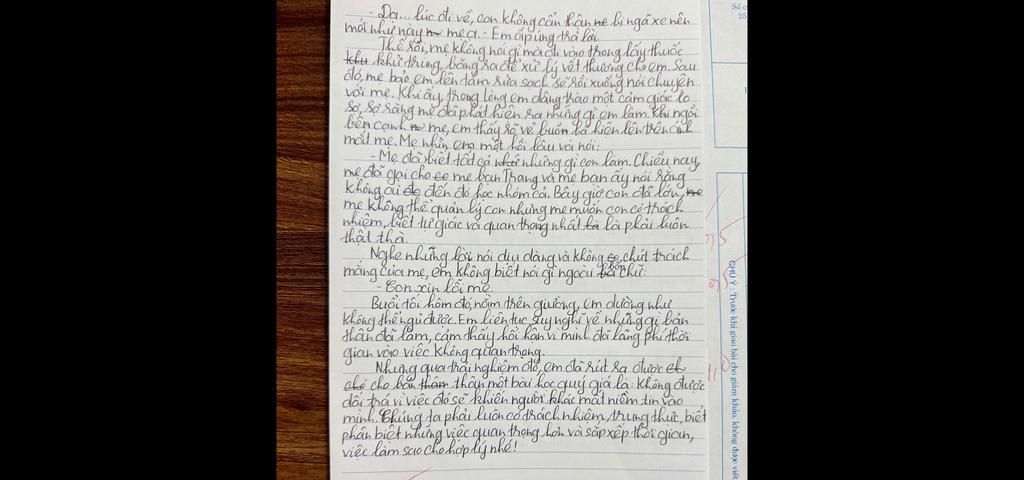 - Dạ... lúc đi về, con không cẩn thận nê bị ngã xe nên
mới như này mẹ ạ. - Em ấp úng trả lời.
Thế rồi, mẹ không nói gì mà đi vào trong lấy thuốc
khử trùng, băng ra để xử lý vết thương cho em. Sau
đó, mẹ bảo em lên tắm rửa sạch sẽ rồi xuống nói chuyện
với mẹ. Khi ấy, trong lòng em dâng trào một cảm giác lo
sợ, sợ rằng mẹ đã phát hiện ra những gì em làm. Khi ngồi
bên cạnh mẹ, em thấy rõ vẻ buồn bã hiện lên trên ánh
mắt mẹ. Mẹ nhìn em một hồi lâu và nói:
- Mẹ đã biết tất cả những gì con làm. Chiều nay,
mẹ đã gọi cho mẹ bạn Trang và mẹ bạn ấy nói rằng
không ai đến đó học nhóm cả. Bây giờ con đã lớn,
mẹ không thể quản lý con nhưng mẹ muốn con có trách
nhiệm, biết tự giác và quan trọng nhất là phải luôn
thật thà.
Nghe những lời nói dịu dàng và không chút trách
mắng của mẹ, em không biết nói gì ngoài chữ:
- Con xin lỗi mẹ.
Buổi tối hôm đó, nằm trên giường, em dường như
không thể ngủ được. Em liên tục suy nghĩ về những gì bản
thân đã làm, cảm thấy hối hận vì mình đã lãng phí thời
gian vào việc không quan trọng.
Nhưng qua trải nghiệm đó, em đã rút ra được
cho bản thân một bài học quý giá là: Không được
dối trá vì việc đó sẽ khiến người khác mất niềm tin vào
mình. Chúng ta phải luôn có trách nhiệm, trung thực, biết
phân biệt những việc quan trọng hơn và sắp xếp thời gian,
việc làm sao cho hợp lý nhé!
Số c
25
CHÚ Ý: Trước khi giao bài cho giám khảo, không được viết